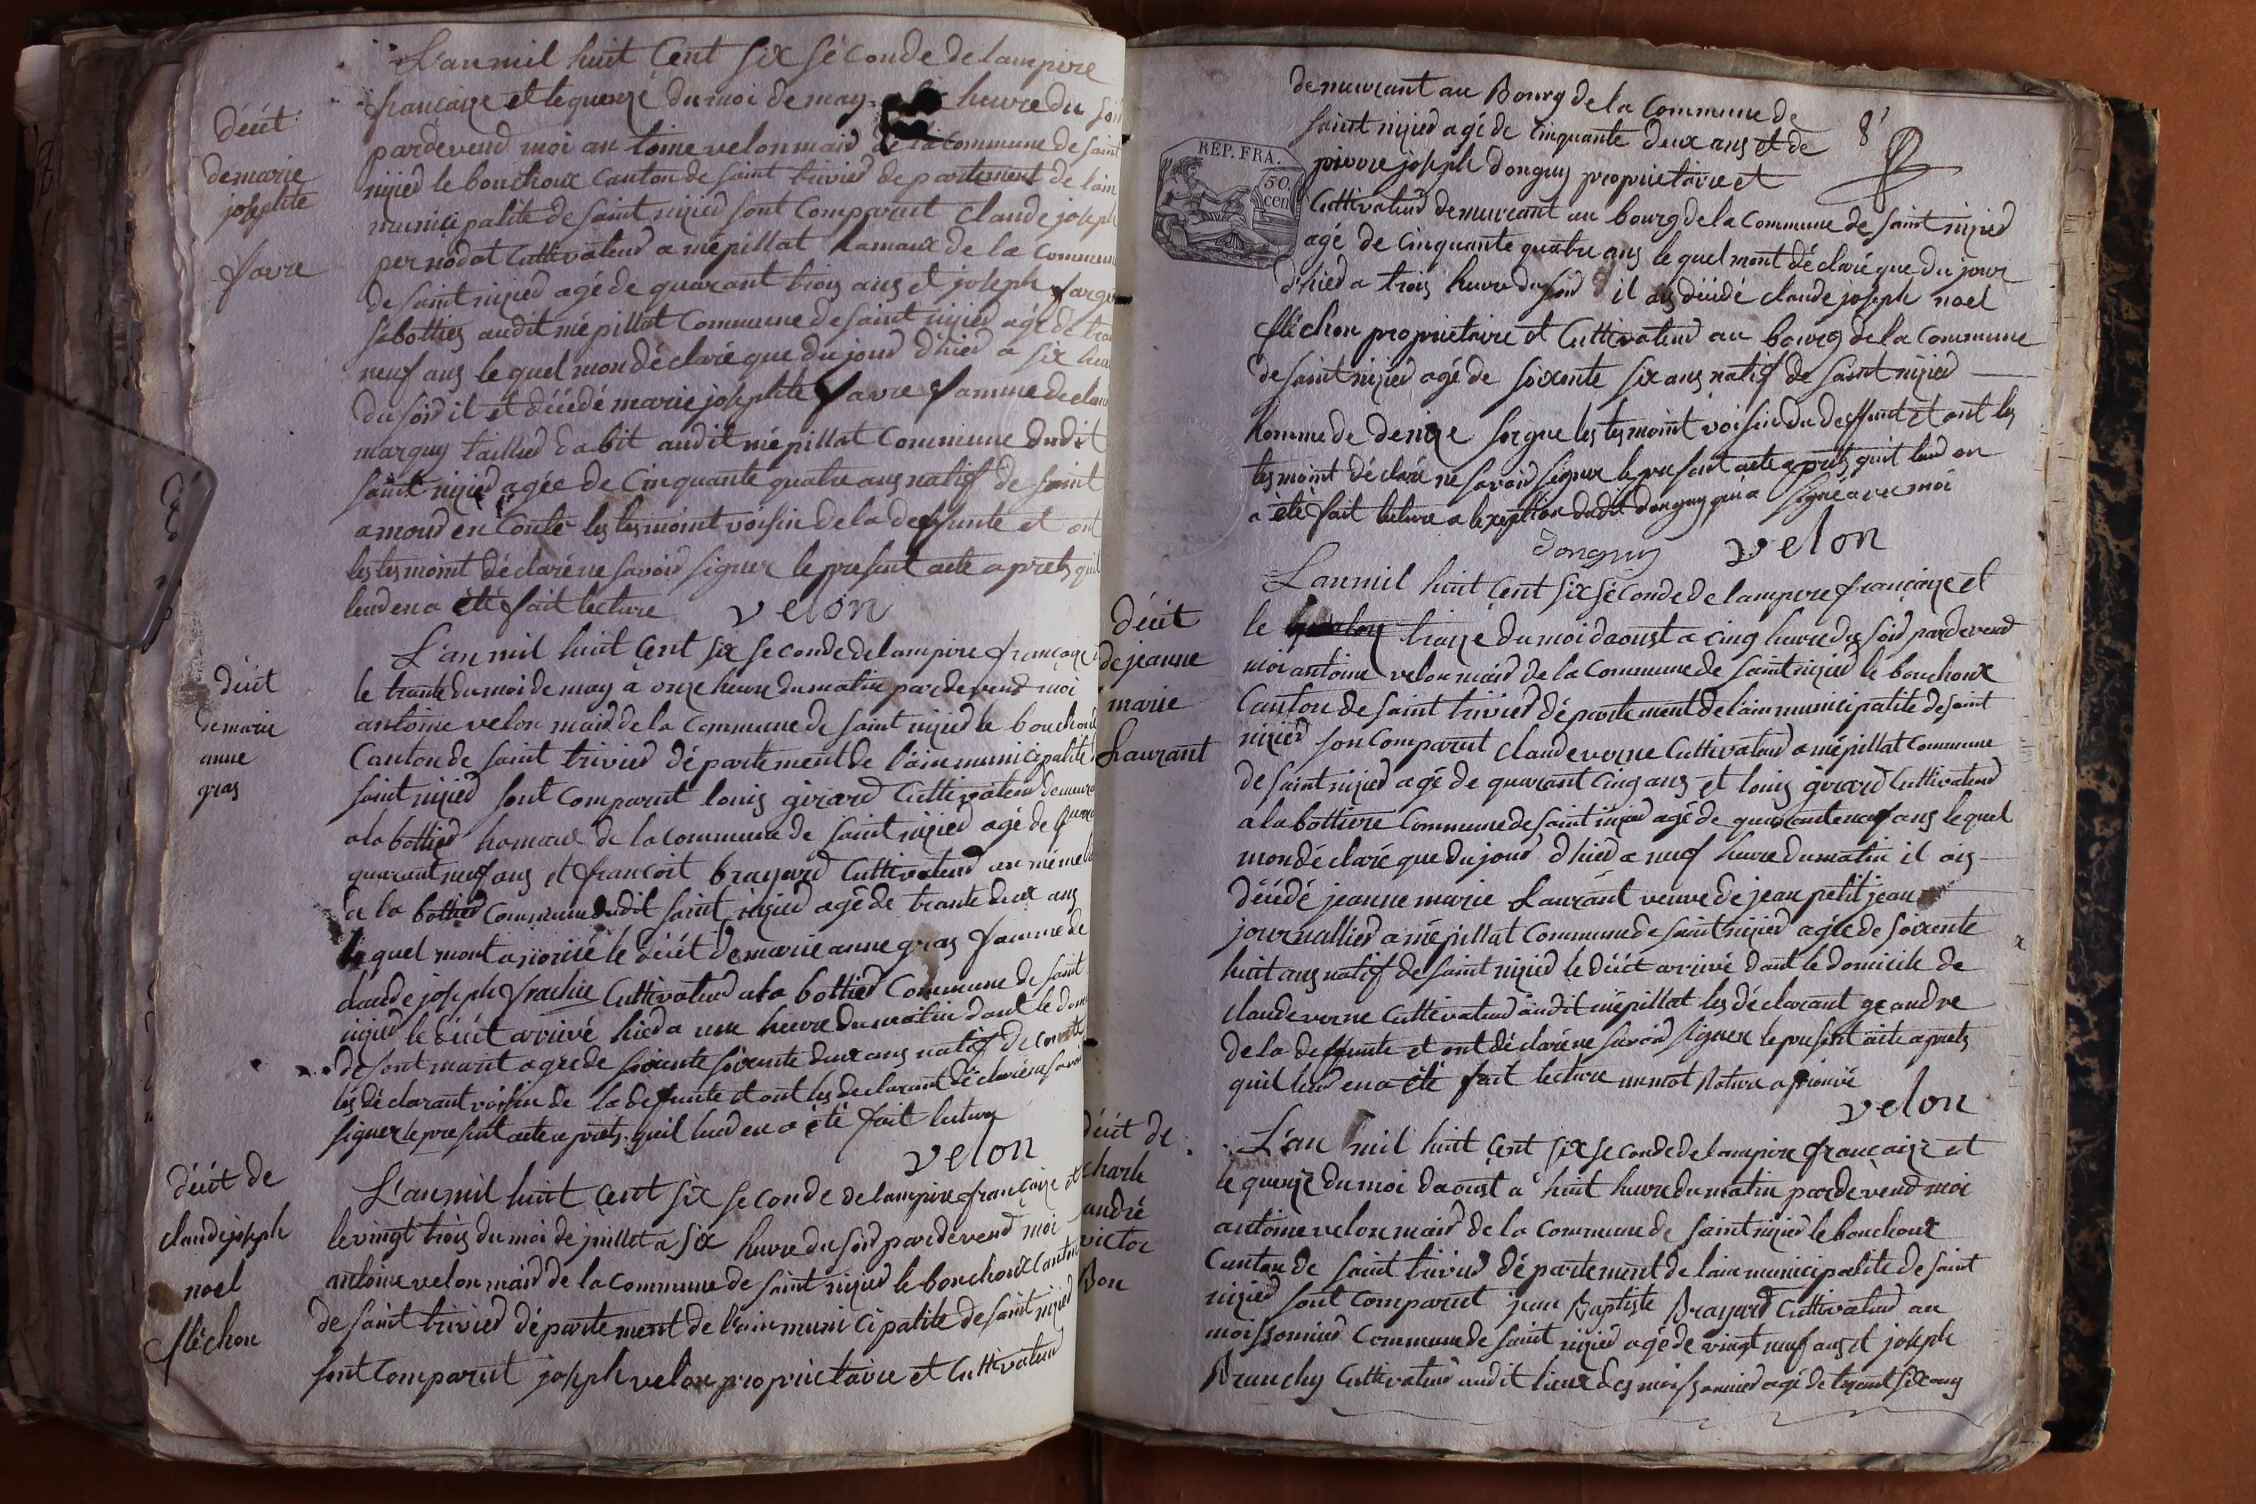 L'an mil huit Cent six séconde de lampire
francaize et le quenze du moi de may heure du soi
pardevend moi antoine velon maid de la commune de saint
nizied le bouchoux canton de saint trivied departement de lain
municipalité de saint nizied sont Comparut claude joseph
pernodat Cultivatend a mépillat hamaux de la Commune
de saint nizied agé de quarant trois ans et joseph farge
sabotties audit mépillat Commune de saint nizied agé de
neuf ans le quel mon déclaré que du jour d'hied a six heu
du soid il et décédé marie josephte favre famme de clau
marguy taillied dabit audit mépillat Commune dudit
saint nizied agée de Cinquante quatre ans natif de saint
amour en Conte les tesmoint voisin de la deffunte et ont
les tesmoint déclaré ne savoir signer le present acte aprets quil
leud en a été fait lecture velon
décét
de marie
josephte
favre
L'an mil huit Cent six seconde de lampire francaize
le trante du moi de may a onze heure du matin pardevend moi
antoine velon maid de la Commune de saint nizied le bouchoux
Canton de saint trivied département de l'ain municipalité
saint nizied sont Comparut louis girard Cultivateud demeura
a la bottied hamaux de la commune de saint nizied agé de
quarant neuf ans et francoit brayard Cultivateud au même
a la bottied Commune dudit saint nizied agé de trante deux ans
le quel mont a noncé le décét de marie anne gras famme de
claude joseph Cultivateud a la bottied Commune de saint
nizied le décét arrivé hied a une heure du matin dant le dom
de sont marit agée de soixante soixante deux ans natif de
les déclarant voisin de la defunte et ont les declarant déclaré ne savoi
signer le present acte aprets quil leud en a été fait lecture
velon
décét
de marie
anne
gras
L'an mil huit Cent six seconde de lampire francaize et
le vingt trois du moi de juillet a six heure du soid pardevend moi
antoine velon maid de la Commune de saint nizied le bouchoux Canton
de saint trivied département de l'ain municipalité de saint nizied
sont Comparut joseph velon proprietaire et Cultivateud
décét de
claude joseph
noel
fléchon
demeurant au Bourg de la Commune de
saint nizied agé de Cinquante deux ans et de
pierre joseph donguy proprietaire et
Cultivateud demeurant au bourg de la Commune de saint nizied
agé de Cinquante quatre ans le quel mont déclaré que du jour
d'hied a trois heure du soid il as décédé claude joseph noel
fléchon proprietaire et Cultivateud au bourg de la Commune
de saint nizied agé de soixante six ans natif de saint nizied
homme de denize sorgue les tesmoint voisin du deffunt et ont les
tesmoint déclaré ne savoir signer le present acte aprets quit leud en
a été fait lecture a lexeption dudit donguy qui a signé avec moi
donguy velon
8
REP. FRA.
50.
cen
L'an mil huit Cent six séconde de lampire francaize et
le traize du moi daoust a cinq heure du soid pardevend
moi antoine velon maid de la Commune de saint nizied le bouchoux
Canton de saint trivied département de lain municipalité de saint
nizied son Comparut claude verne Cultivateud a mépillat Commune
de saint nizied agé de quarant Cinq ans et louis girard Cultivateud
a la bottiere Commune de saint nizied agé de quarante neuf ans le quel
mon déclaré que du jour d'hied a neuf heure du matin il ais
décédé jeanne marie Laurant veuve de jean petit jean
journallied a mépillat Commune de saint nizied agée de soixente
huit ans natif de saint nizied le décét arrivé dant le domicile de
claude verne Cultivateud audit mépillat les déclarant geandre
de la deffunte et ont déclaré ne savoir signer le present acte aprets
quil leud en a été fait lecture un mot rature aprouvé
velon
décét
de jeanne
marie
Laurant
L'an mil huit Cent six seconde de lampire francaize et
le quenze du moi daoust a huit heure du matin pardevend moi
antoine velon maid de la Commune de saint nizied le bouchoux
Canton de saint trivied département de lain municipalité de saint
nizied sont Comparut jean Baptiste Brayard Cultivateud au
moissonnied Commune de saint nizied agé de vingt neuf ans et joseph
Cultivateud audit lieux des moissonnied agé de trant six ans
décét de
charle
andré
victor
Bon